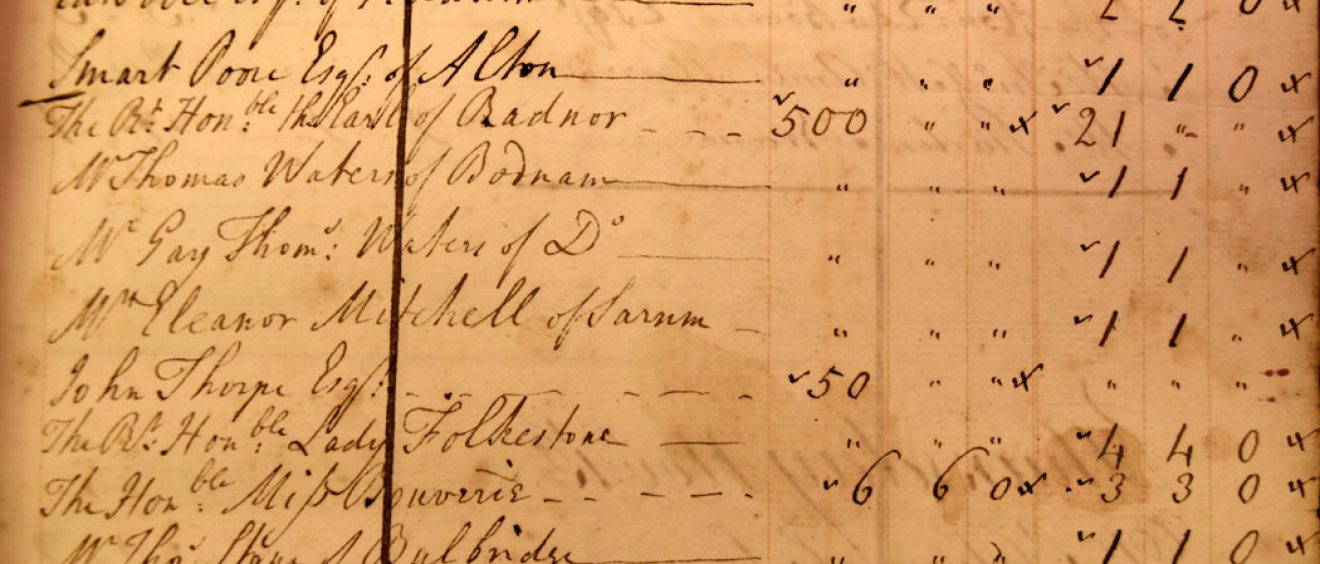 Esqr. of 2 2 0 x
Smart Poore Esqr. of Alton 〃 〃 〃 1 1 0 x
The Rt. Honble. the Earl of Radnor - - - 500 〃 〃 x 21 〃 〃 x
Mr Thomas Waters of Bodnam 〃 〃 〃 1 1 〃 x
Mr Gay Thoms: Waters of Do 〃 〃 〃 1 1 〃 x
Mrs Eleanor Mitchell of Sarum 〃 〃 〃 1 1 〃 x
John Thorpe Esqr. - - - 50 〃 〃 x 〃 〃 〃
The Rt. Honble. Lady Folkestone 〃 〃 〃 4 4 0 x
The Honble. Miſs Bouverie - - - - 6 6 0 x 3 3 0 x
Mr Thos. of Bulbridge 〃 〃 〃 1 1 0 x